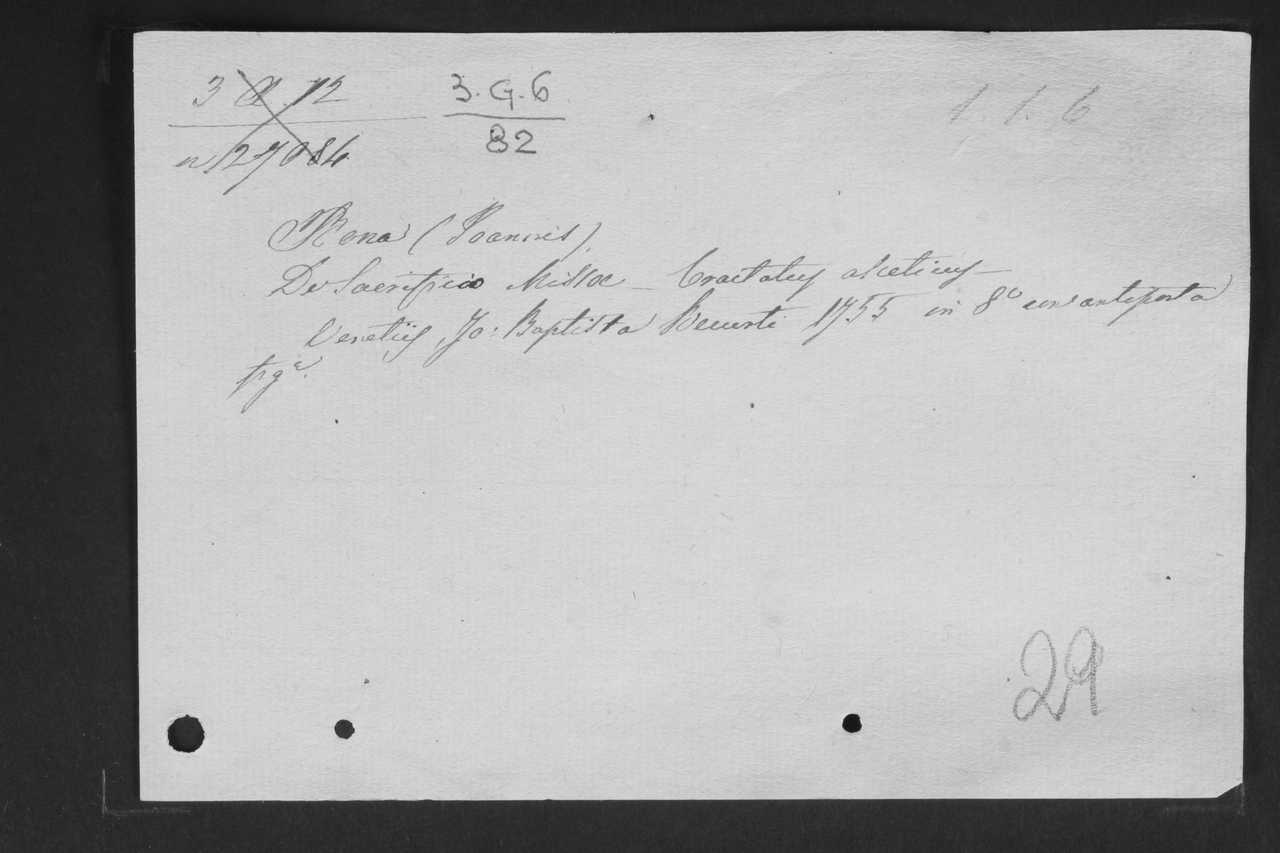 3 A 12
n 127084
3. G. 6
82
1. 1. 6
Bona (Joannis)
De Sacrificio Missae – Tractatus asceticus –
Venetiis, Jo: Baptista Recurti 1755 in 8° con antiporta
figa.
29